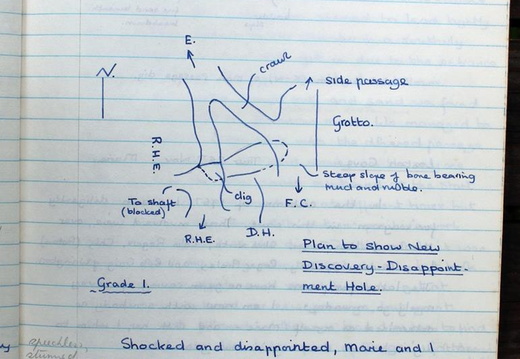 N.
E.
crawl
side passage
Grotto.
R.H.E.
Steep slope of bone bearing
mud and rubble.
To shaft
(blocked)
dig
F.C.
R.H.E.
D.H.
Plan to show New
Discovery - Disappoint-
ment Hole.
Grade 1.
speechless,
stunned
Shocked and disappointed, Marie and I